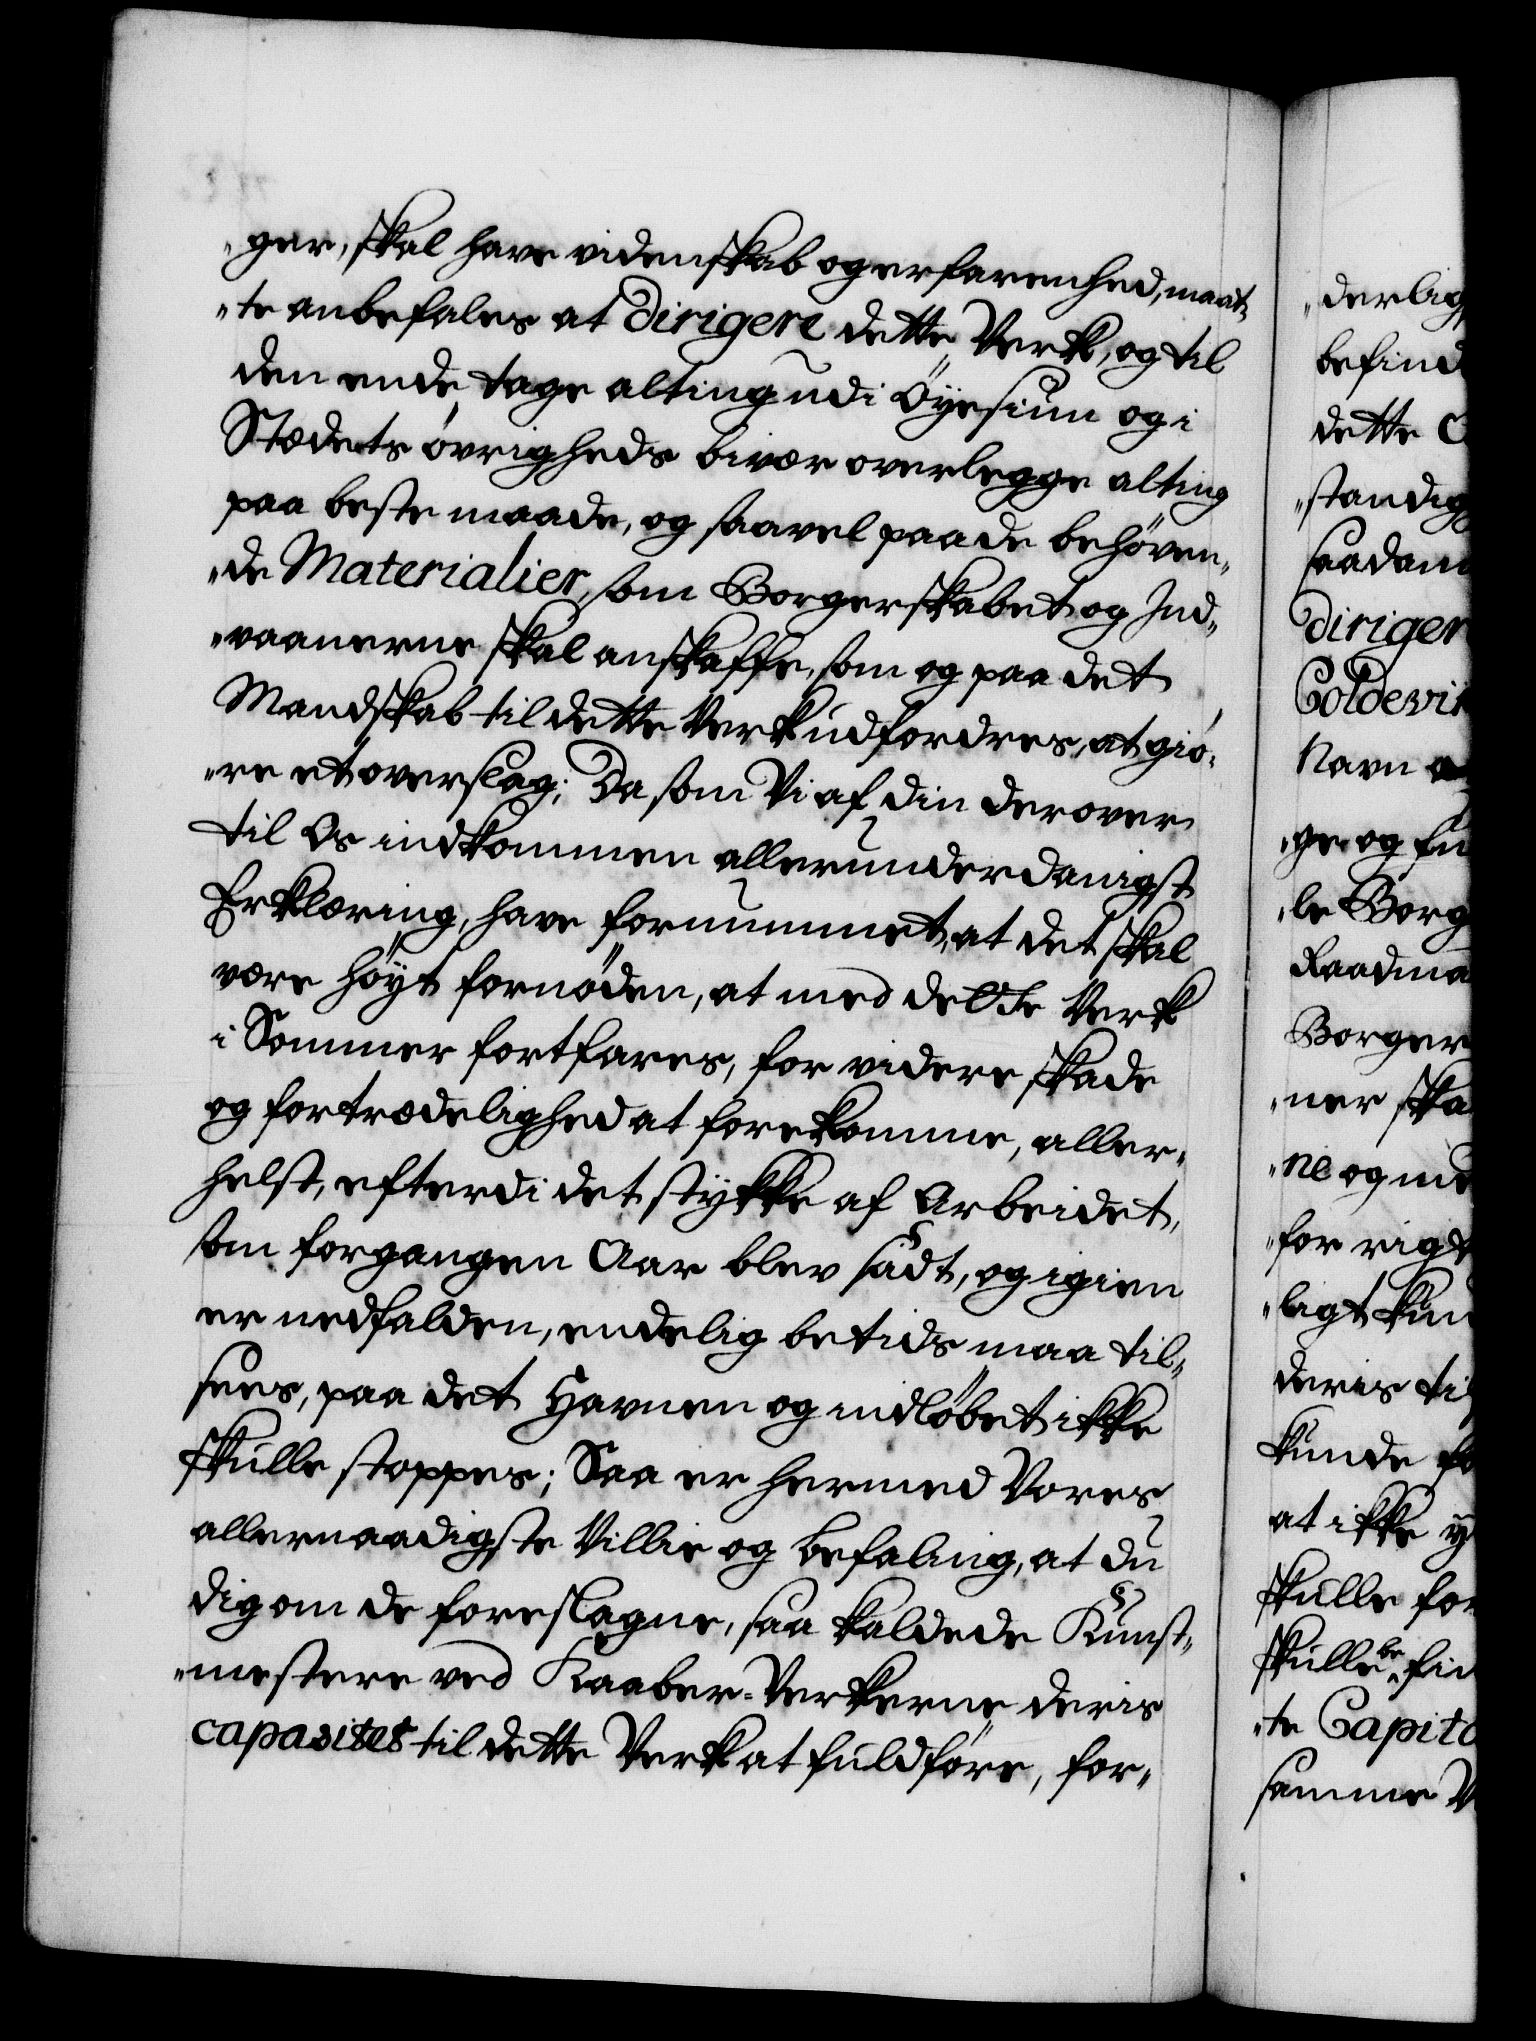 "ger, skal have videnskab og erfarenhed, maat„
"te anbefales at Dirigere dette Verk, og til
den ende tage alting udi Öyesiun og i
Stædets övrigheds bivær overlegge alting
paa beste maade, og saavel paa de behöven„
"de Materialier, som Borgerskabet og Ind„
"vaanerne skal anskaffe, som og paa det
Mandskab til dette Verk udfordres, at giö„
"re et overslag; Da som Vi af din derover
til Os indkommen allerunderdanigst
Erklæring, have fornummet, at det skal
være höyt fornöden, at med dette Verk
i Sommer fortfares, for videre skade
og fortrædelighed at forekomme, aller„
helst, efterdi det stykke af Arbeidet,
som forgangen Aar blev sadt, og igien
er nedfalden, endelig betids maa til„
sees, paa det Havnen og indlöbet ikke
skulle stoppes; Saa er hermed Vores
allernaadigste Villie og befaling, at du
dig om de foreslagne, saa kaldede Kunst„
"mestere ved Kaaber-Verkerne deris
capasitet til dette Verk at fuldföre, for„
"derlig
befind
dette
"standig
saadan
diriger
Coldevi
Navn
"ge og
"le Borg
Raadma
Borger
"ner ska
"ne og
for rigt
"lagt kun
deris til
kunde
at ikke
skulle for
skulle be„ fin
"te Capit
samme V